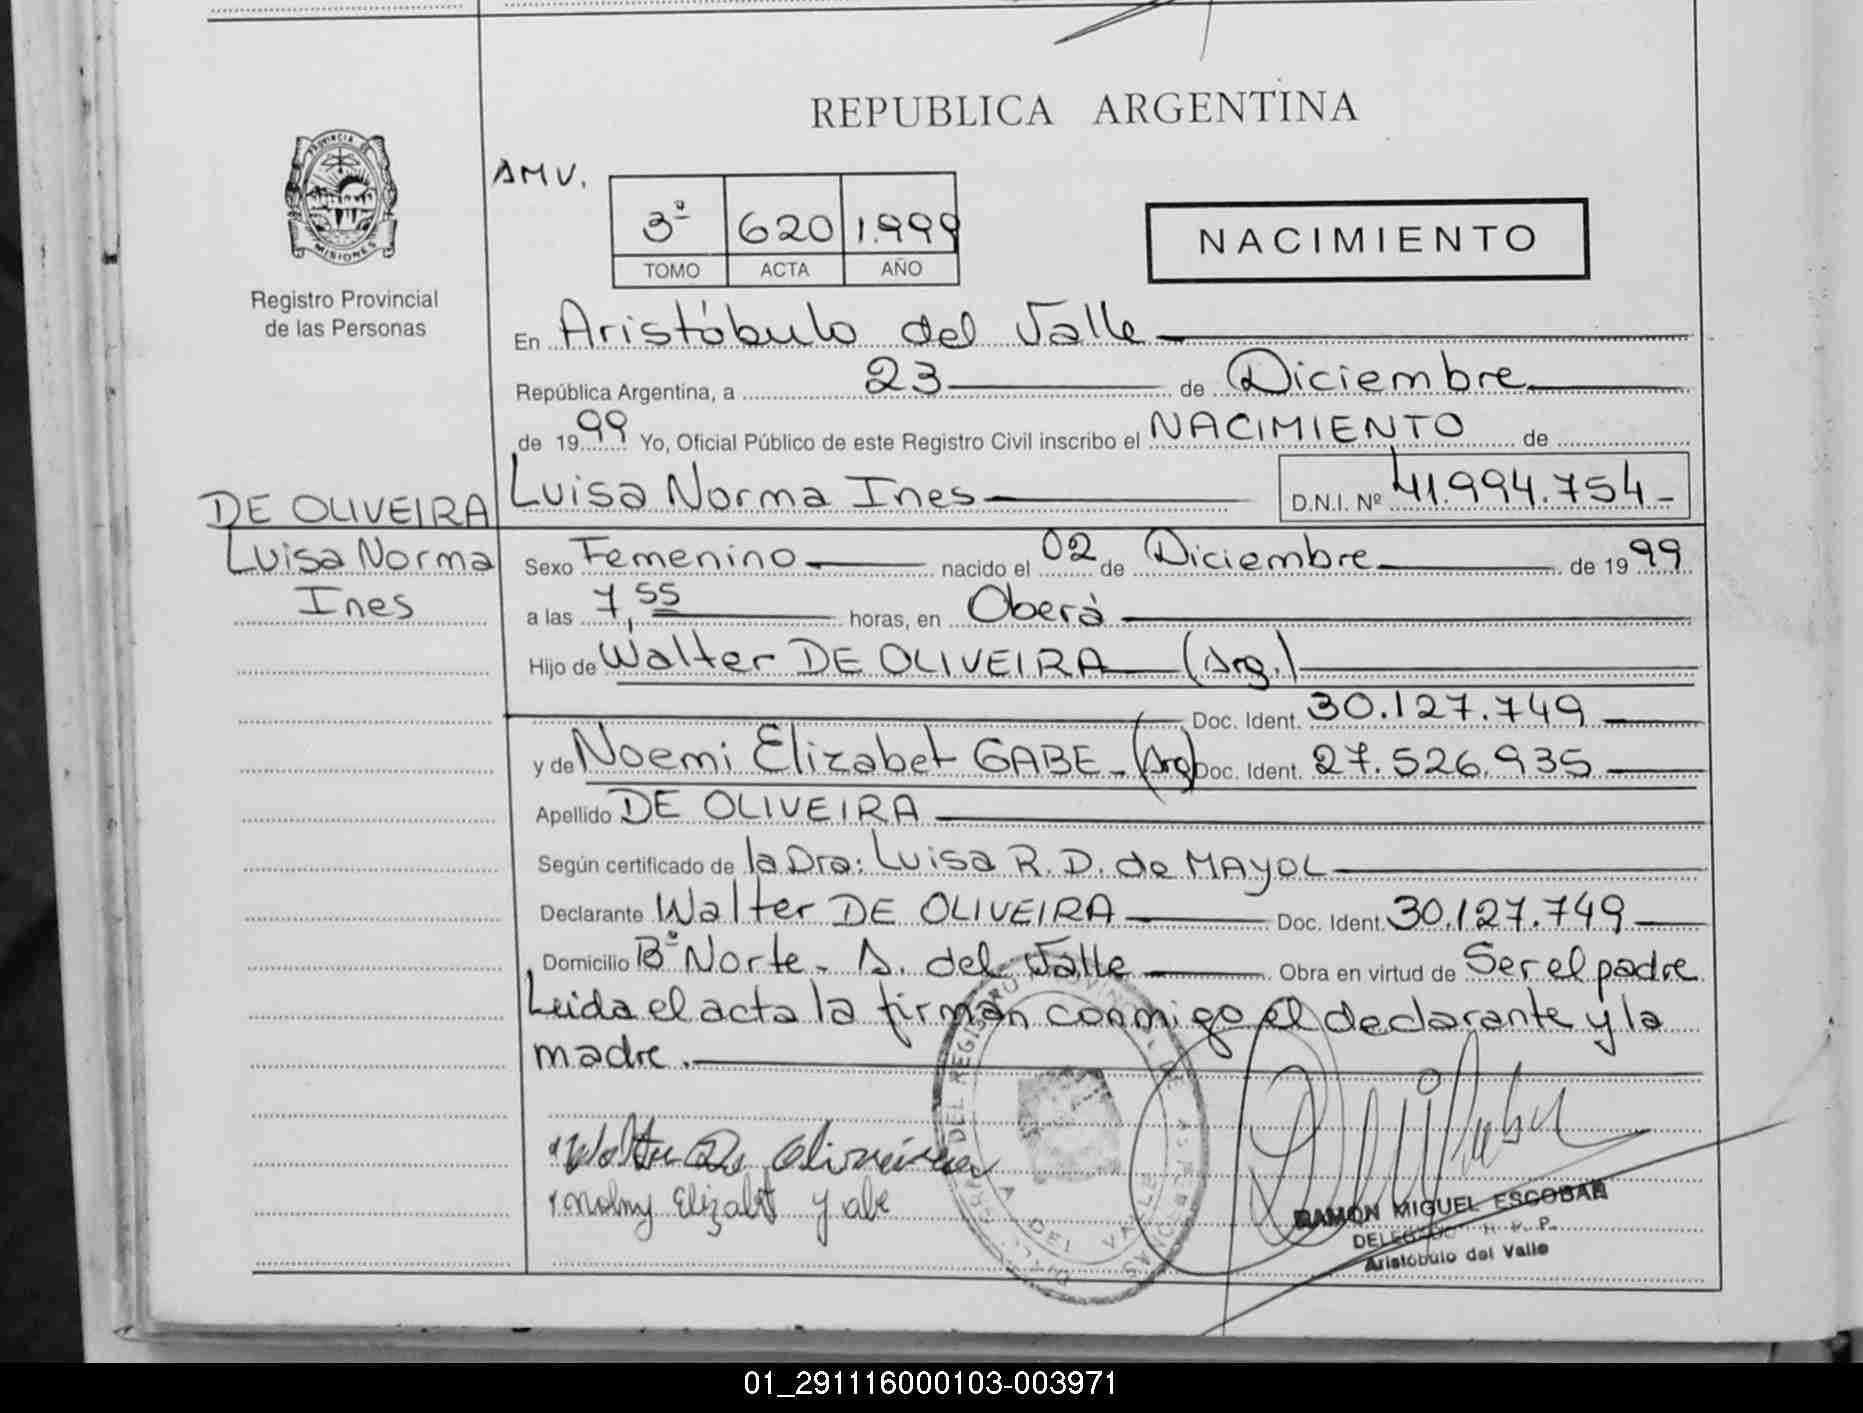 REPUBLICA ARGENTINA
PROVINCIA DE
MISIONES
Registro Provincial
de las Personas
AMV.
3º 620 1.999
TOMO ACTA AÑO
NACIMIENTO
En Aristóbulo del Valle
República Argentina, a 23 de Diciembre
de 1999 Yo, Oficial Público de este Registro Civil inscribo el NACIMIENTO de
Luisa Norma Ines D.N.I. Nº 41.994.754-
DE OLIVEIRA
Luisa Norma
Ines
Sexo Femenino nacido el 02 de Diciembre de 1999
a las 7,55 horas, en Oberá
Hijo de Walter DE OLIVEIRA (Arg.)
Doc. Ident. 30.127.749
y de Noemi Elizabet GABE - (Arg) Doc. Ident. 27.526.935
Apellido DE OLIVEIRA
Según certificado de la Dra: Luisa R. D. de MAYOL
Declarante Walter DE OLIVEIRA Doc. Ident. 30.127.749
Domicilio Bº Norte - A. del Valle Obra en virtud de Ser el padre
Leida el acta la firman conmigo el declarante y la
madre.
Walter De Oliveira
Elizabet
RAMON MIGUEL ESCOBAR
DELEGADO R. P. P.
Aristóbulo del Valle
01_291116000103-003971